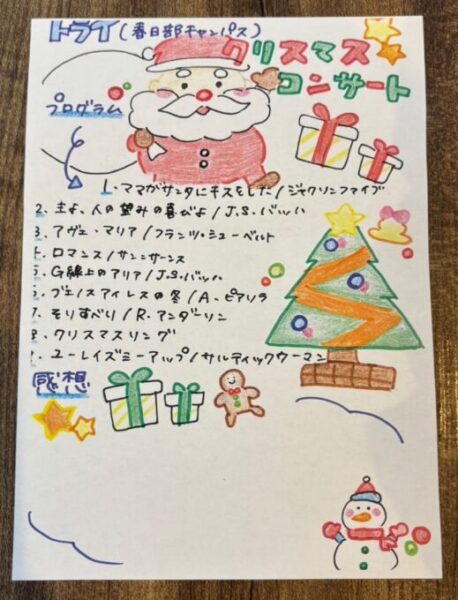 トライ(春日部キャンパス)
クリスマス
コンサート
プログラム
1. ママがサンタにキスをした/ジャクソンファイブ
2. 主よ、人の望みの喜びよ/J.S.バッハ
3. アヴェ・マリア/フランツ・シューベルト
4. ロマンス/サン=サーンス
5. G線上のアリア/J.S.バッハ
6. ブエノスアイレスの冬/A.ピアソラ
7. そりすべり/R.アンダーソン
8. クリスマスソング
9. ユーレイズミーアップ/ケルティックウーマン
感想